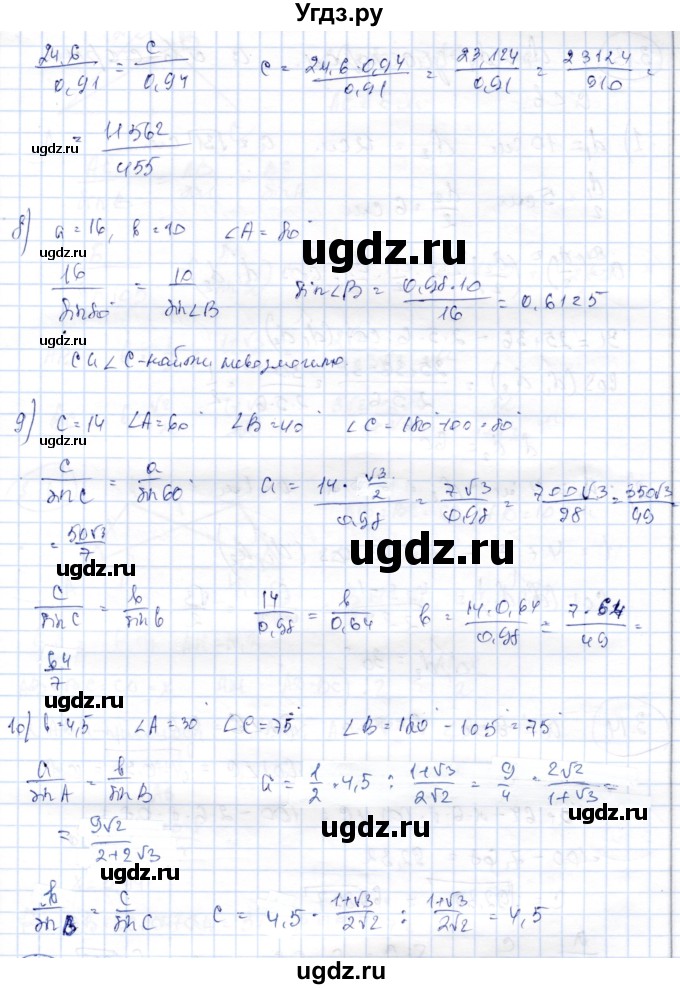 Угдз.ру
24,6/0,91 = c/0,94 c = 24,6·0,94/0,91 = 23,124/0,91 = 23124/910 =
= 11562/455
ugdz.ru
ugdz.ru
8) a=16, b=10 ∠A=80°
ugdz.ru
16/sin80° = 10/sin∠B sin∠B = 0,98·10/16 = 0,6125
ugdz.ru
c и ∠C - найти невозможно
9) c=14 ∠A=60° ∠B=40° ∠C=180°-100°=80°
ugdz.ru
c/sin C = a/sin 60° a = 14·√3/2/0,98 = 7√3/0,98 = 700√3/98 = 350√3/49
= 50√3/7
ugdz.ru
ugdz.ru
c/sin C = b/sin b 14/0,98 = b/0,64 b = 14·0,64/0,98 = 7·64/49 =
64/7
ugdz.ru
10) b=4,5 ∠A=30° ∠C=75° ∠B=180°-105°=75°
a/sin A = b/sin B a = 1/2·4,5 : 1+√3/2√2 = 9/4 · 2√2/1+√3 =
ugdz.ru
= 9√2/2+2√3
ugdz.ru
b/sin B = c/sin C c = 4,5 · 1+√3/2√2 : 1+√3/2√2 = 4,5
ugdz.ru
ugdz.ru